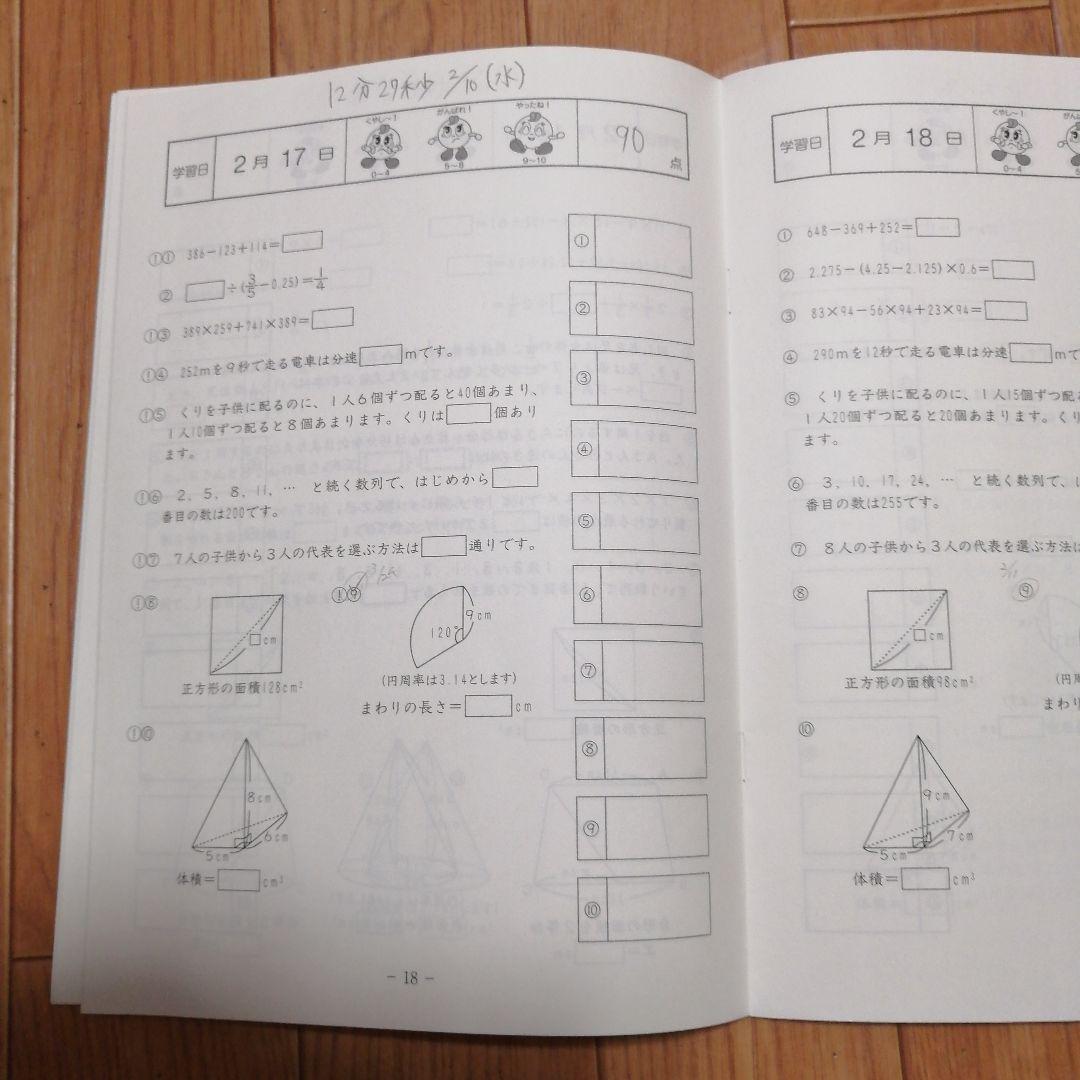 12分29秒 2/10(水)
学習日 2月 17日
くやし〜! がんばれ! やったね!
0〜4 5〜8 9〜10
90 点
① 386−123+114=□
② □÷(3/5−0.25)=1/4
③ 389×259+741×389=□
④ 252mを9秒で走る電車は分速□mです。
⑤ くりを子供に配るのに、1人6個ずつ配ると40個あまり、
1人10個ずつ配ると8個あまります。くりは□個あり
ます。
⑥ 2, 5, 8, 11, … と続く数列で、はじめから□
番目の数は200です。
⑦ 7人の子供から3人の代表を選ぶ方法は□通りです。
⑧
□cm
正方形の面積128cm²
⑨
9cm
120°
(円周率は3.14とします)
まわりの長さ=□cm
⑩
8cm
6cm
5cm
体積=□cm³
①
②
③
④
⑤
⑥
⑦
⑧
⑨
⑩
− 18 −
学習日 2月 18日
くやし〜!
0〜4
① 648−369+252=□
② 2.275−(4.25−2.125)×0.6=□
③ 83×94−56×94+23×94=□
④ 290mを12秒で走る電車は分速□m
⑤ くりを子供に配るのに、1人15個ずつ配
1人20個ずつ配ると20個あまります。くり
ます。
⑥ 3, 10, 17, 24, … と続く数列で、は
番目の数は255です。
⑦ 8人の子供から3人の代表を選ぶ方法は
2/11
⑧
□cm
正方形の面積98cm²
⑨
(円周
まわり
⑩
9cm
7cm
5cm
体積=□cm³